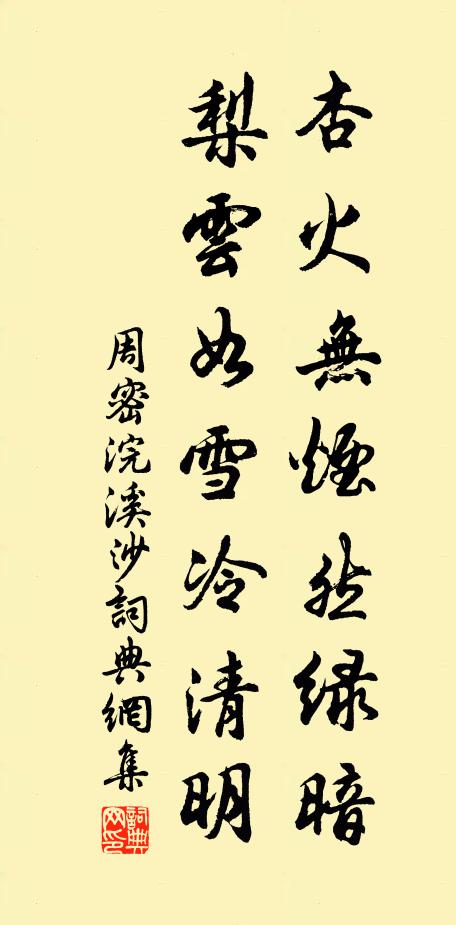 杏火無煙然緑暗
梨雲如雪冷清明
周密浣溪沙詞典網集
詞典网印